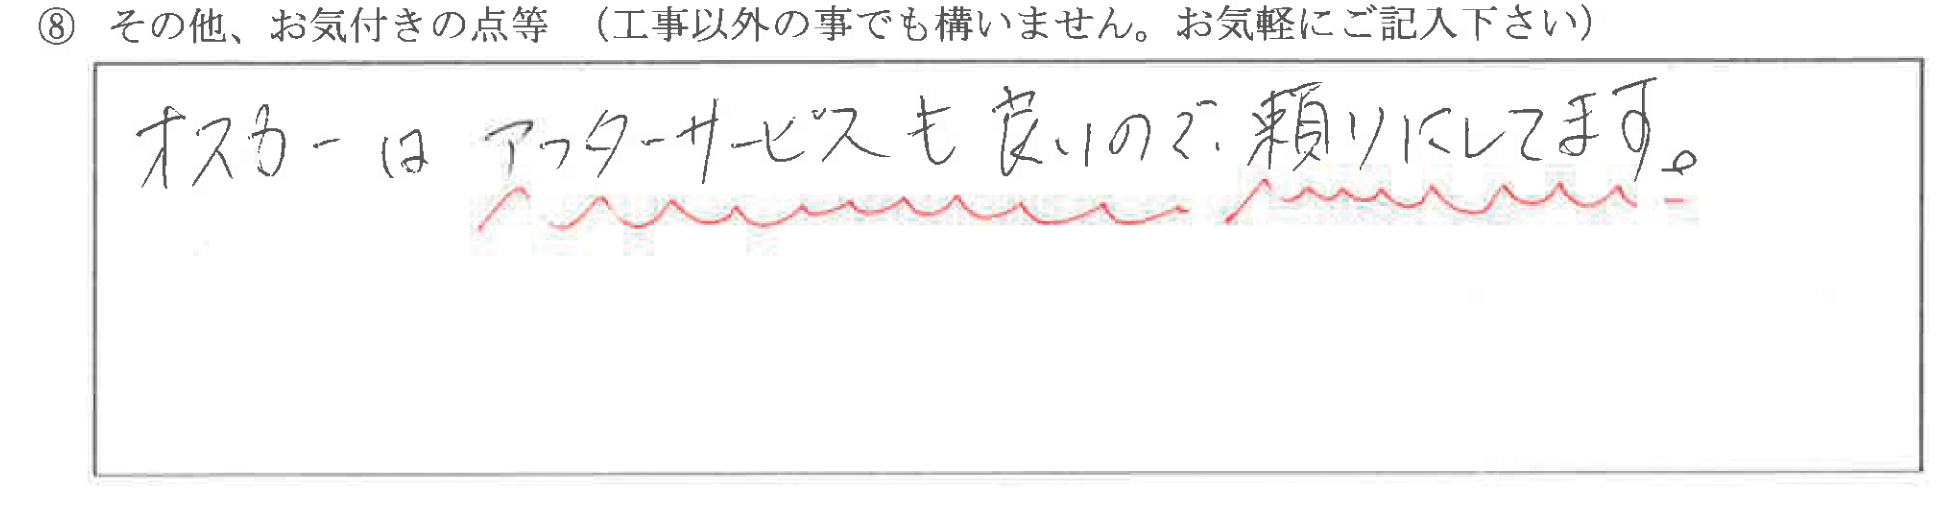 ⑧ その他、お気付きの点等 （工事以外の事でも構いません。お気軽にご記入下さい）
オスカーは アフターサービスも良いので、頼りにしてます。